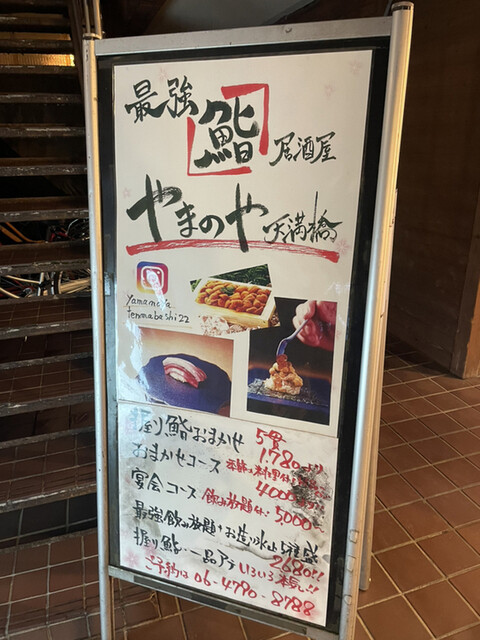 最強
鮨 居酒屋
やまのや 天満橋
yamanoya
tenmabashi22
握り鮨おまかせ 5貫
1.780
おまかせコース
4000
宴会コース 飲み放題付 5000
最強飲み放題+お造り
2680!!
握り鮨・一品アテいろいろ
ご予約は 06-4790-8788